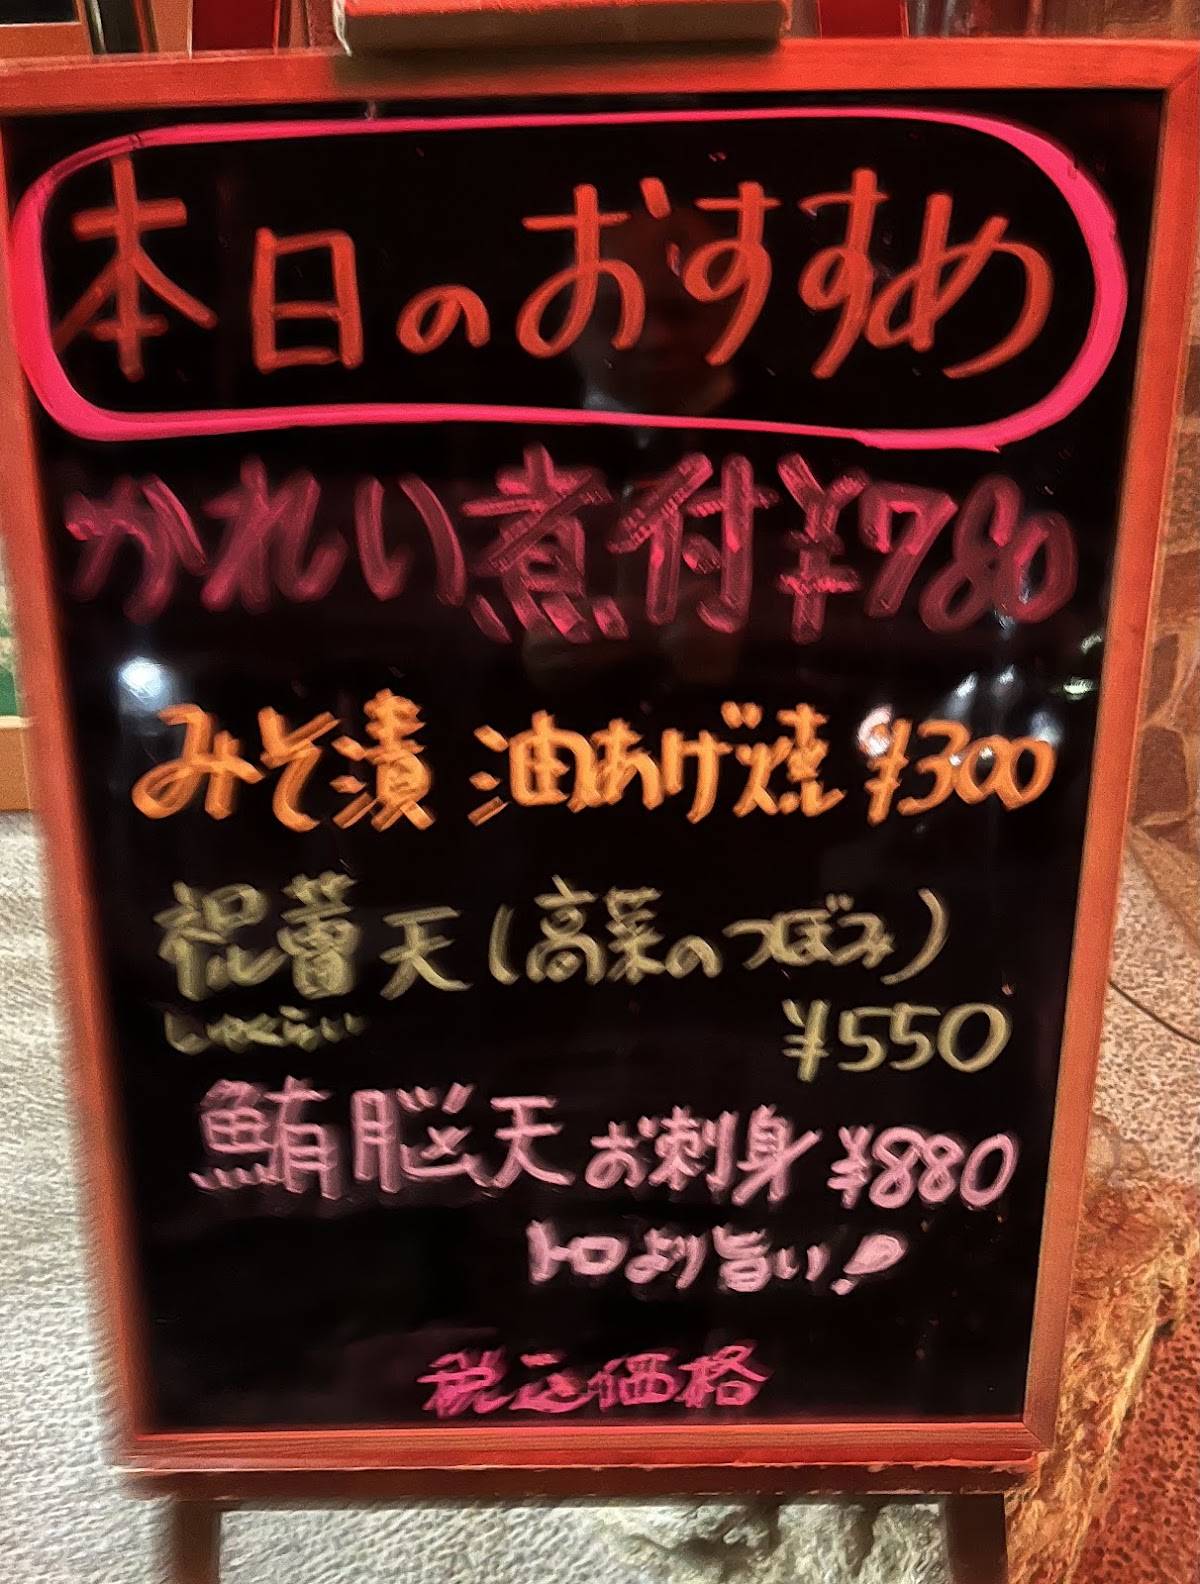 本日のおすすめ
かれい煮付¥780
みそ漬 油あげ焼 ¥300
祝蕾天(高菜のつぼみ)
しゅくらい
¥550
鮪脳天お刺身 ¥880
トロより旨い!
税込価格